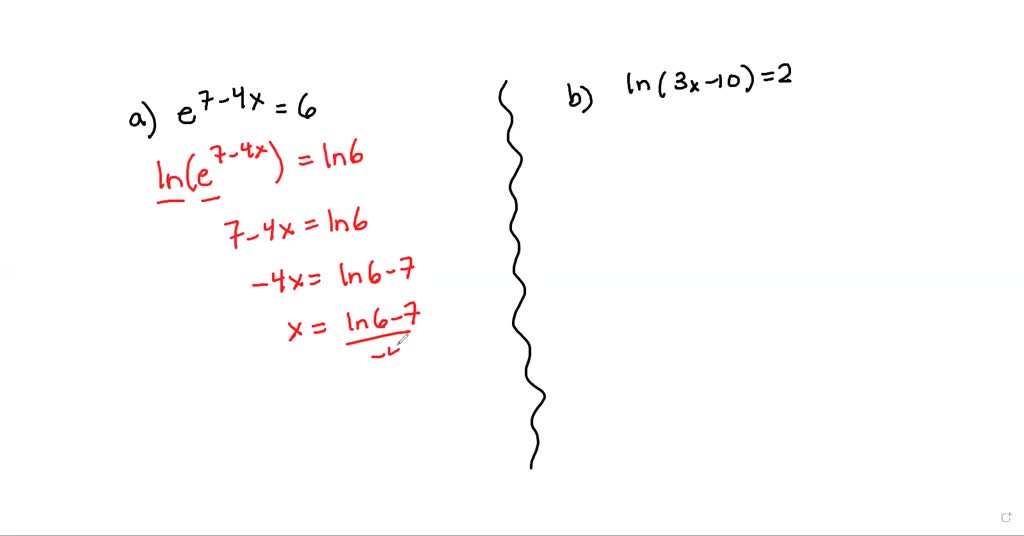 a) e^{7-4x} = 6
ln(e^{7-4x}) = ln6
7-4x = ln6
-4x = ln6-7
x = ln6-7
b) ln(3x-10)=2